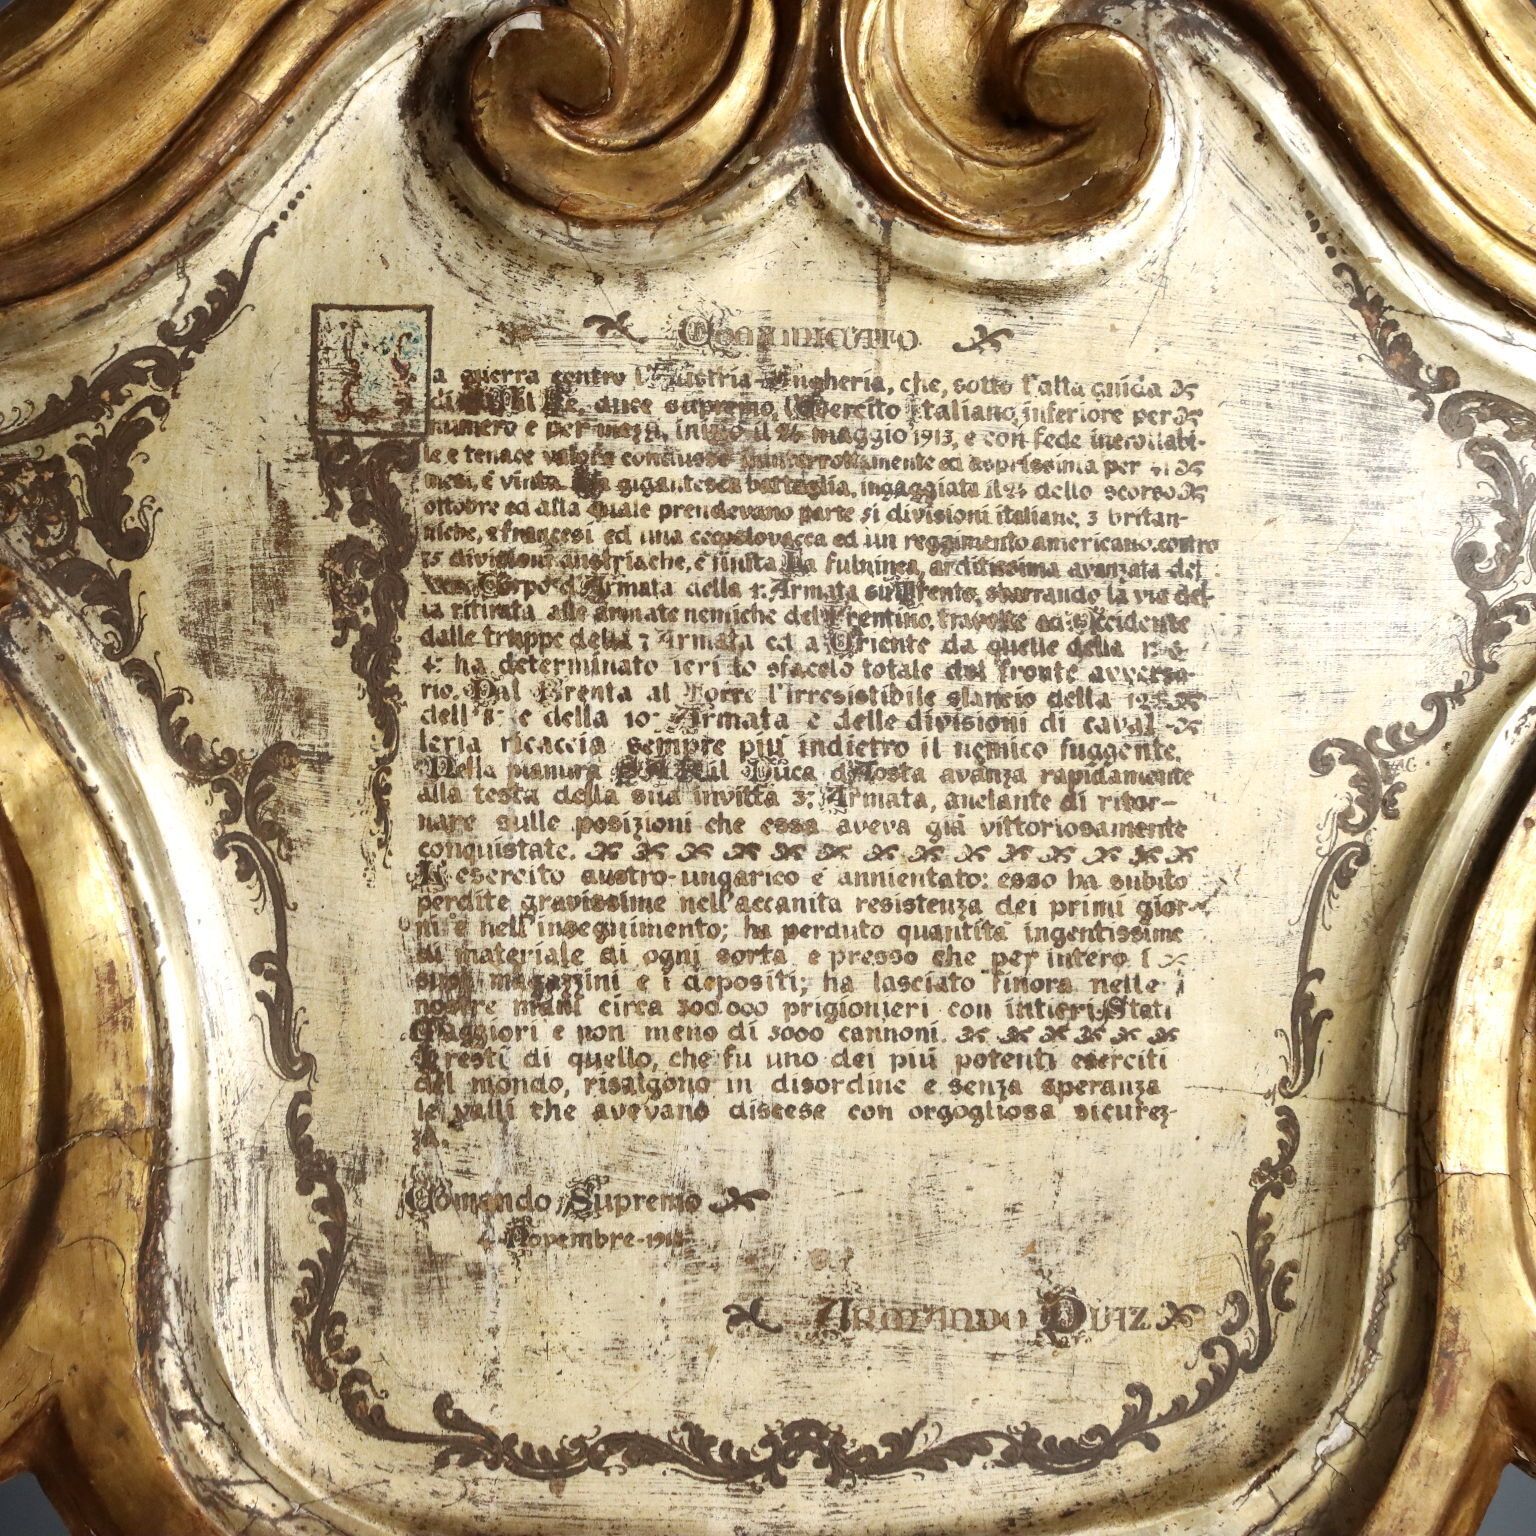 Comunicato
La guerra contro l'Austria-Ungheria, che, sotto l'alta guida
di S. M. il Re, duce supremo, l'Esercito Italiano, inferiore per
numero e per mezzi, iniziò il 24 maggio 1915, e con fede incrollabi-
le e tenace valore condusse ininterrottamente ed asprissima per 41
mesi, è vinta. La gigantesca battaglia, ingaggiata il 24 dello scorso
ottobre ed alla quale prendevano parte 51 divisioni italiane, 3 britan-
niche, 2 francesi ed una cecoslovacca ed un reggimento americano, contro
75 divisioni austriache, è finita La fulminea, arditissima avanzata del
Corpo d'Armata della 1ª Armata su Trento, sbarrando la via del-
la ritirata alle armate nemiche del Trentino, travolte ad Occidente
dalle truppe della 7 Armata ed a Oriente da quelle della
4ª ha determinato ieri lo sfacelo totale del fronte avversa-
rio. Dal Brenta al Torre l'irresistibile slancio della 12ª
dell'8ª e della 10ª Armata e delle divisioni di caval-
leria ricaccia sempre più indietro il nemico fuggente.
Nella pianura S.A.R. il Duca d'Aosta avanza rapidamente
alla testa della sua invitta 3ª Armata, anelante di ritor-
nare sulle posizioni che essa aveva già vittoriosamente
conquistate.
L'esercito austro-ungarico è annientato: esso ha subito
perdite gravissime nell'accanita resistenza dei primi gior-
ni e nell'inseguimento; ha perduto quantità ingentissime
di materiale di ogni sorta e presso che per intero i
suoi magazzini e i depositi; ha lasciato finora nelle
nostre mani circa 300.000 prigionieri con intieri Stati
Maggiori e non meno di 5000 cannoni.
I resti di quello, che fu uno dei più potenti eserciti
del mondo, risalgono in disordine e senza speranza
le valli che avevano discese con orgogliosa sicurez-
za.
Comando Supremo
4 Novembre-1918
Armando Diaz